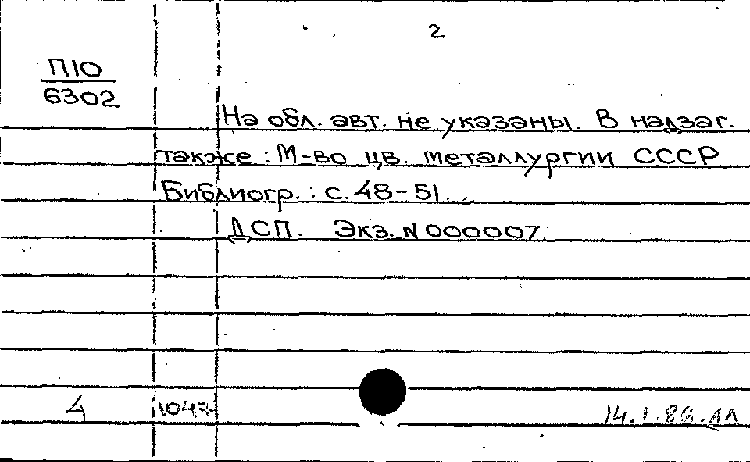 2
П10
6302
На обл. авт. не указаны. В надзаг.
также: М-во цв. металлургии СССР
Библиогр.: с. 48-51
ДСП. Экз. N 000007.
4
14.1.86.